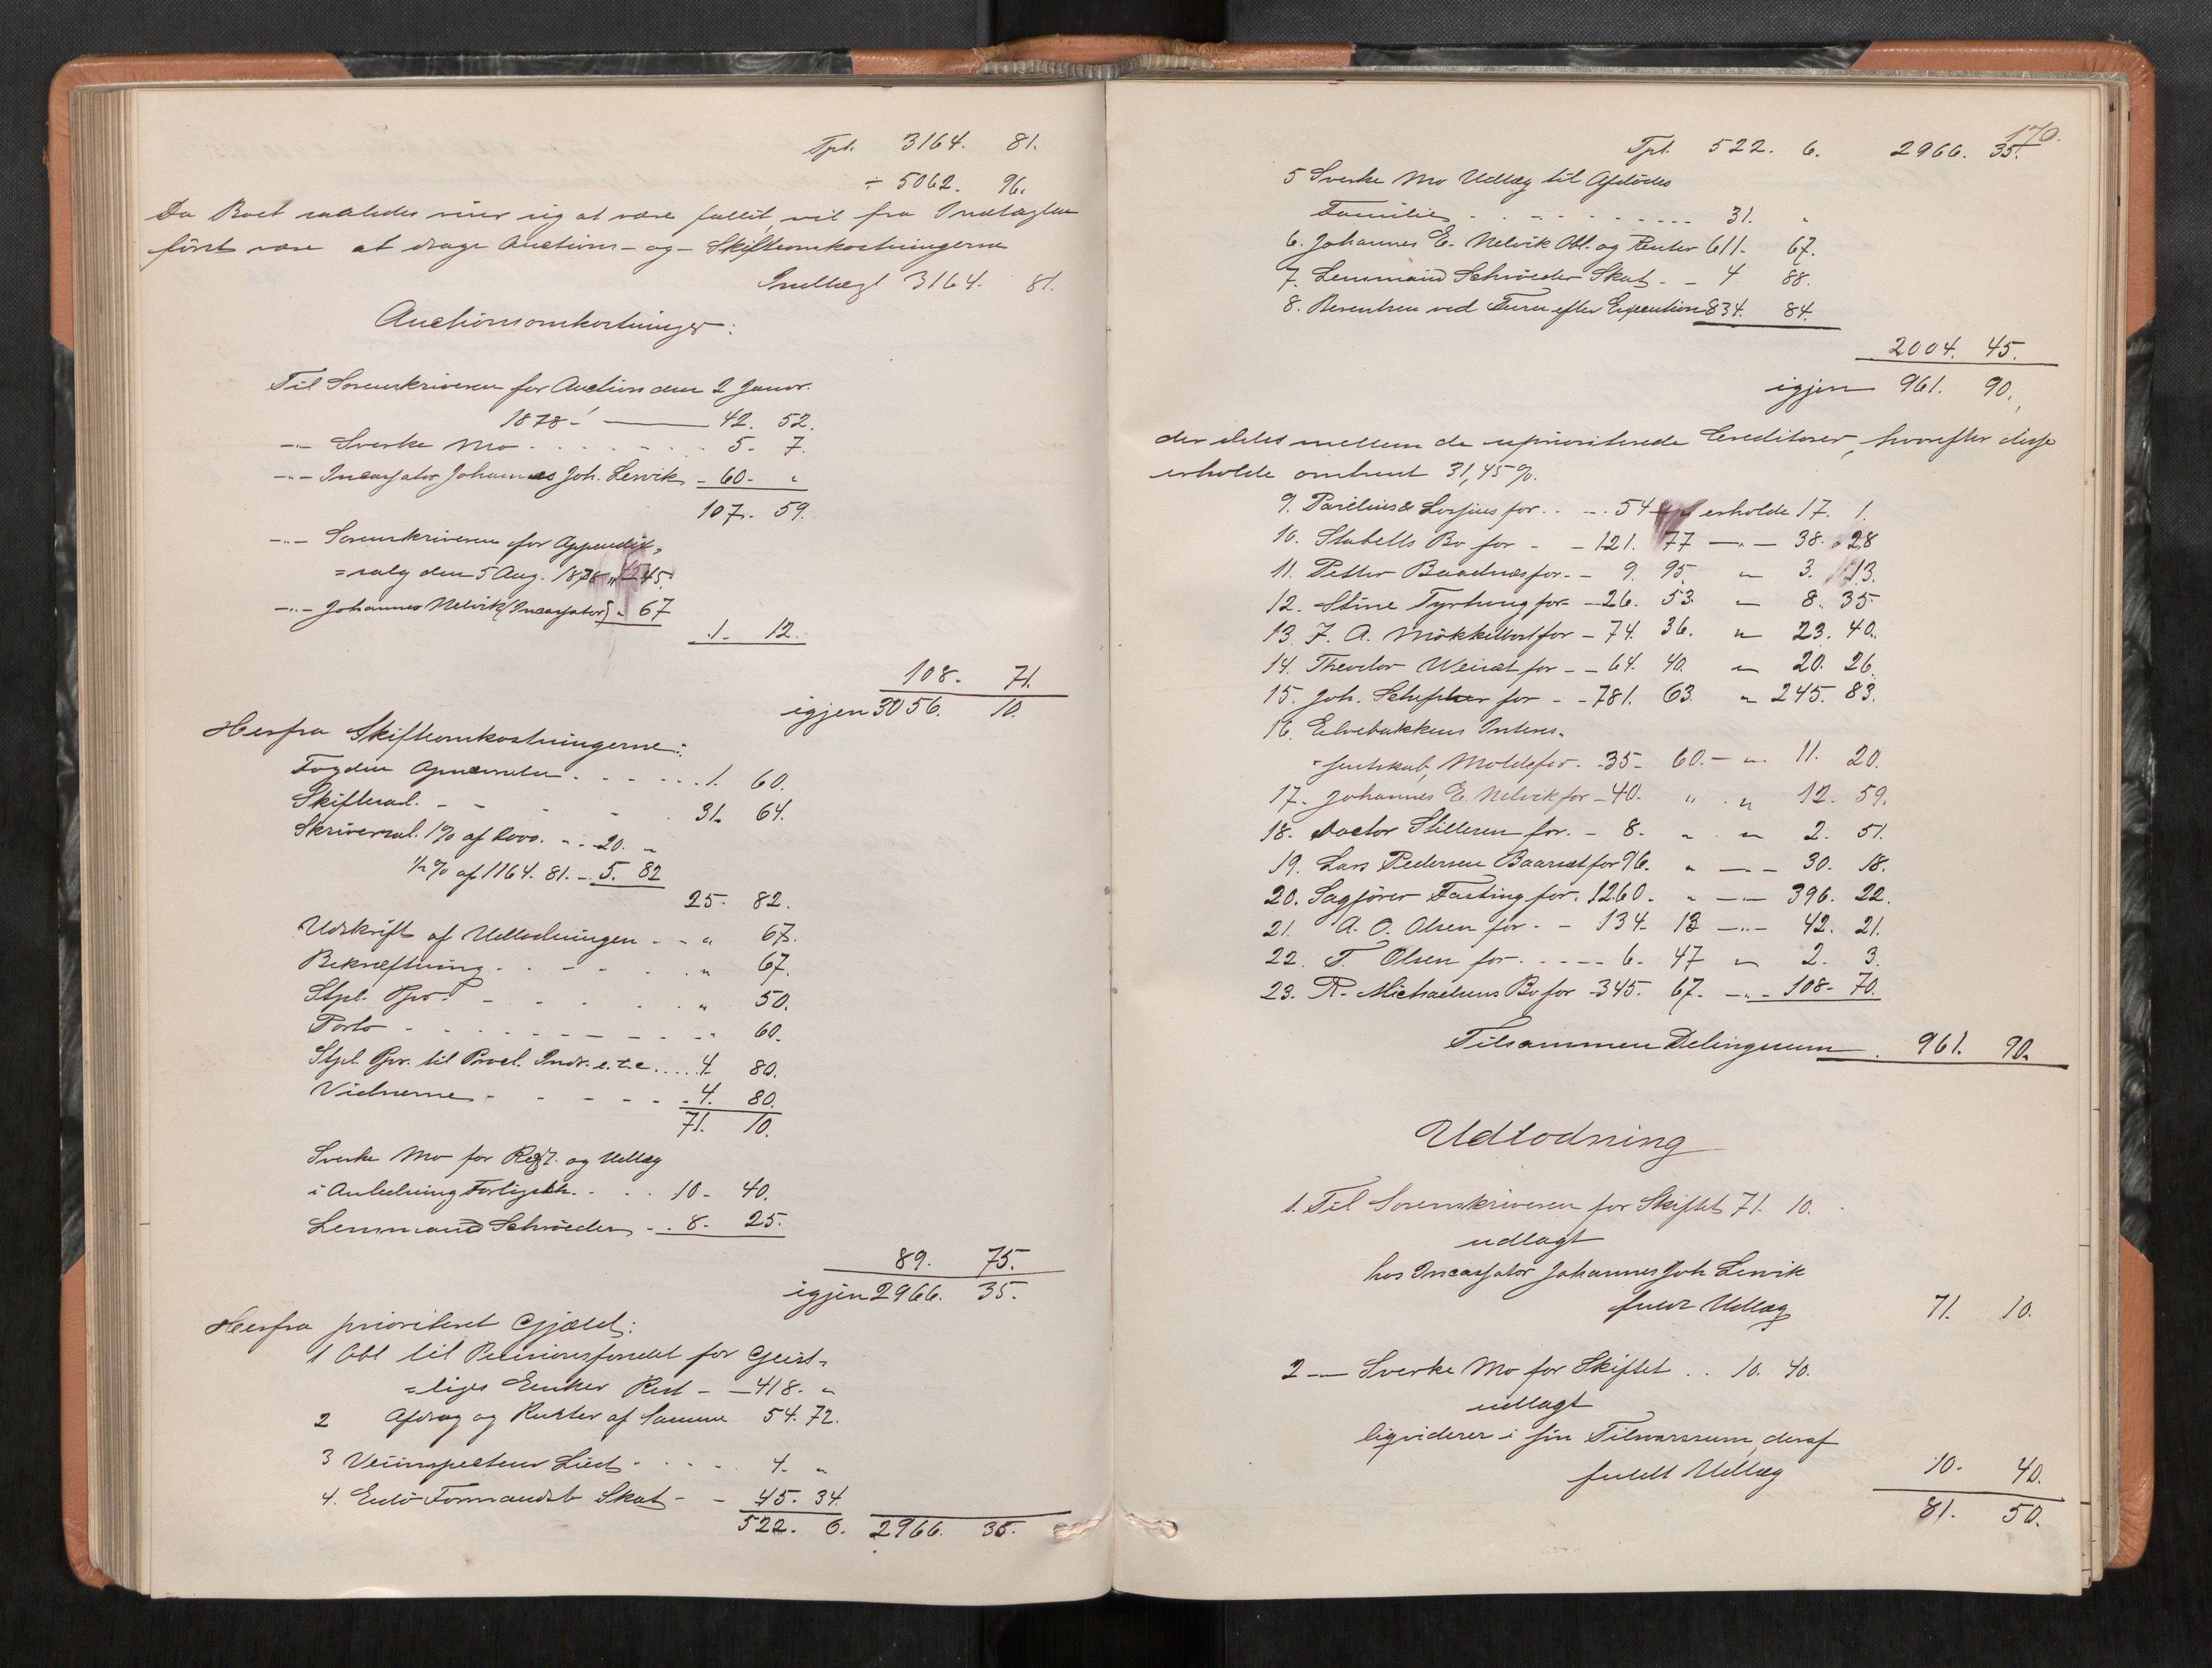 Tpt. 3164. 81.
÷ 5062. 96.
Da Boet saaledes viser sig at være fallit, vil fra Indtægten
först være at drage Auctions- og Skifteomkostningerne
Indtægt 3164. 81.
Auctionsomkostninger:
Til Sorenskriveren for Auction den 2 Januar.
1878 42. 52.
-"- Sverke Mo 5. 7.
-"- Incassator Johannes Joh. Lervik 60. "
107. 59.
-"- Sorenskriveren for Appendix,
=salg den 5 Aug. 1878 " 45.
-"- Johannes Nelvik (Incassator) " 67
1. 12.
108. 71.
igjen 3056. 10.
Herfra Skifteomkostningerne:
Fogden 1. 60.
Skiftesal. 31. 64.
Skriversal. 1% af 2000. 20. "
½% af 1164. 81. 5. 82
25. 82.
Udskrift af Udlodningen " 67.
Bekræftning " 67.
Stpl. Ppr. " 50.
Porto " 60.
Stpl. Ppr. til Procl. Indr. e.t.c. 4. 80.
Vidnerne 4. 80.
71. 10.
Sverke Mo for Regt. og Udlæg
i Anledning 10. 40.
Lensmand Schröeder 8. 25.
89. 75.
igjen 2966. 35.
Herfra prioriteret Gjæld:
1 Obl til Pensionsfondet for Geist-
=liges Enker Rest 418. "
2 Afdrag og Renter af Samme 54. 72.
3 Veiinspecteur 4. "
4. Edö Formandsk. Skat 45. 34.
522. 6. 2966. 35.
170.
Tpt. 522. 6. 2966. 35.
5 Sverke Mo Udlæg til Afdödes
Familie 31. "
6. Johannes E. Nelvik Obl. og Renter 611. 67.
7. Lensmand Schröeder Skat 4 88.
8. Berentsen ved Furu efter Execution 834. 84.
2004. 45.
igjen 961. 90.
der deles mellem de uprioriterede Creditorer, hvorefter disse
erholde omtrent 31,45%.
9. Parelius & Lossius for 54 " erholde 17. 1.
10. Stabells Bo for 121. 77 -"- 38. 28
11. Petter for 9. 95. " 3. 13.
12. Stine for 26. 53. " 8. 35.
13. F. A. for 74. 36. " 23. 40.
14. Theodor for 64. 40. " 20. 26.
15. Joh. for 781. 63. " 245. 83.
16. Elvebakkens Interes-
-sentskab, Molde for 35. 60. " 11. 20.
17. Johannes E. Nelvik for 40. " " 12. 59.
18. Doctor for 8. " " 2. 51.
19. Lars Pedersen for 96. " -"- 30. 18.
20. Sagförer Fasting for 1260. " -"- 396. 22.
21. A. O. Olsen for 134. 13 -"- 42. 21.
22. T. Olsen for 6. 47 " 2. 3.
23. R. Michaelsens Bo for 345. 67. -"- 108. 70.
Tilsammen Delingssum 961. 90.
Udlodning
1. Til Sorenskriveren for Skiftet 71. 10.
udlagt
hos Incassator Johannes Joh Lervik
fuldt Udlæg 71. 10.
2 -"- Sverke Mo for Skiftet 10. 40.
udlagt
liqviderer i sin Tilsvarssum, deraf
fuldt Udlæg 10. 40.
81. 50.